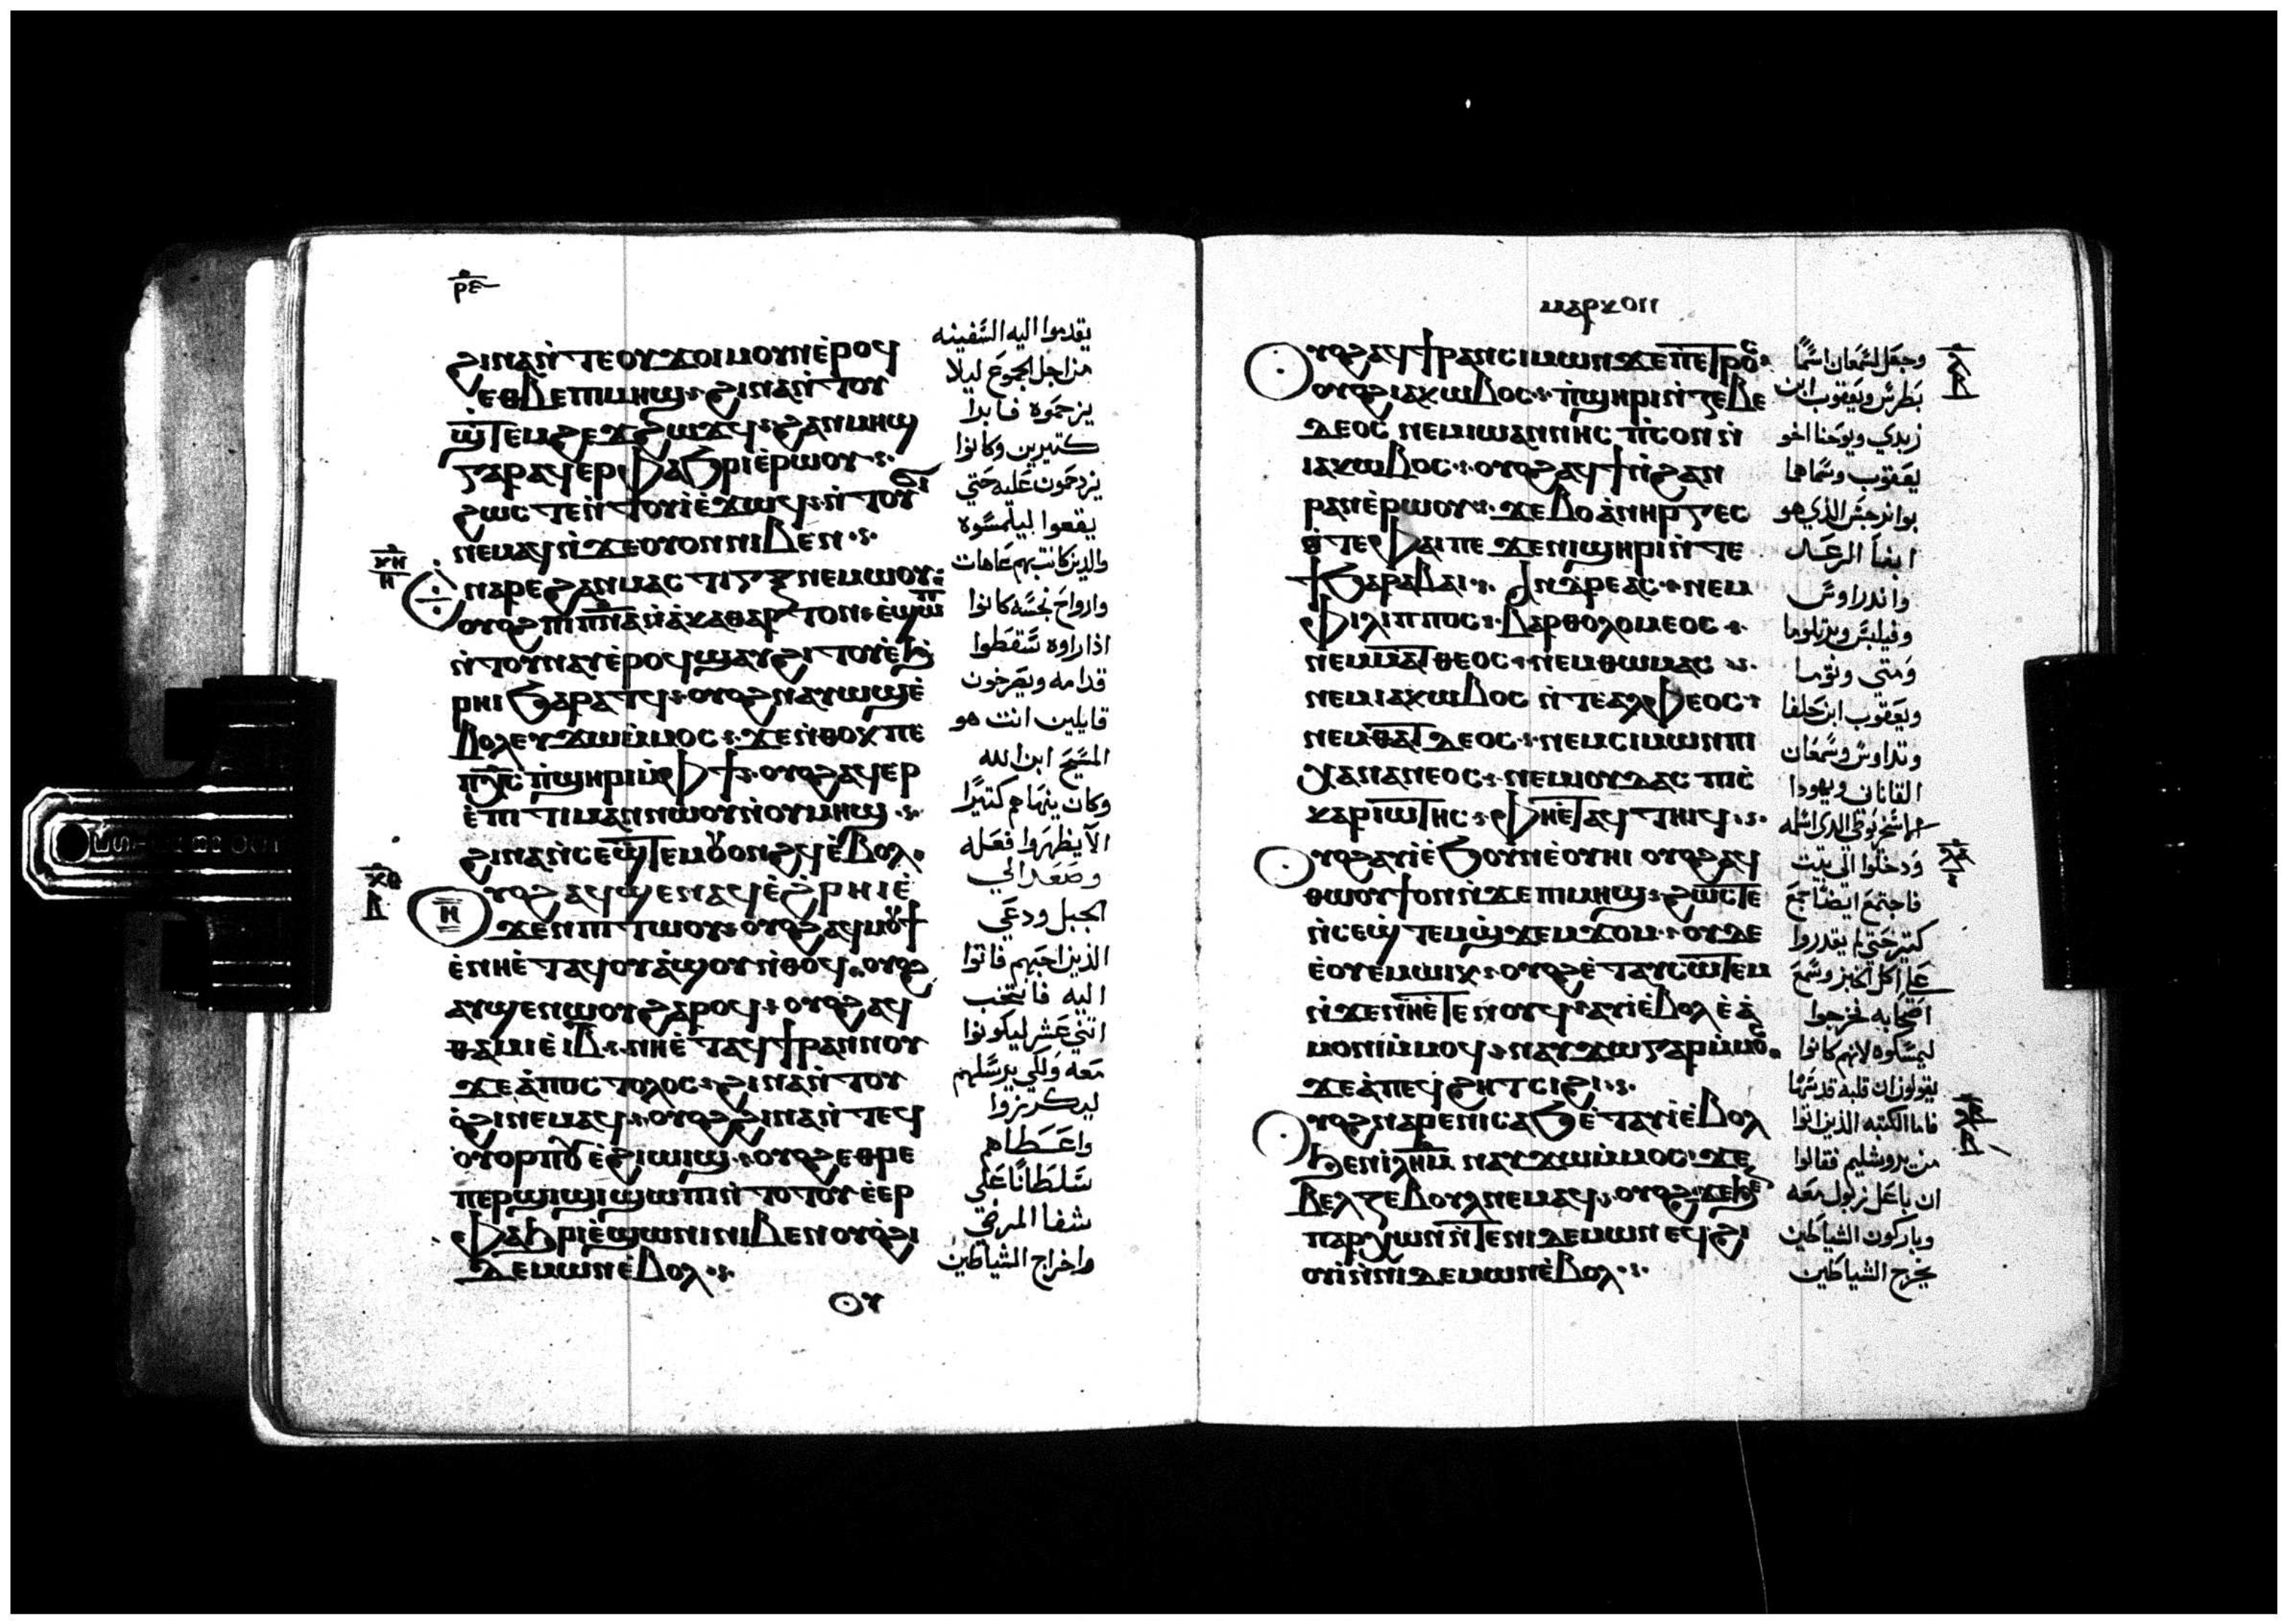 ⲣⲉ
ϩⲓⲛⲁ ⲛ̀ⲧⲉ ⲟⲩϫⲟⲓ ⲙⲟⲩⲛ ⲉ̀ⲣⲟϥ
ⲉⲑⲃⲉ ⲡⲓⲙⲏϣ ϩⲓⲛⲁ ⲛ̀ⲧⲟⲩ
ϣ̀ⲧⲉⲙϩⲉϫϩⲱϫϥ ϩⲁⲛⲙⲏϣ
ⲅⲁⲣ ⲁϥⲉⲣⲫⲁϧⲣⲓ ⲉ̀ⲣⲱⲟⲩ
ϩⲱⲥⲧⲉ ⲛ̀ⲧⲟⲩⲓ̀ ⲉ̀ϫⲱϥ ⲛ̀ⲧⲟⲩϭⲓ
ⲛⲉⲙⲁϥ ⲛ̀ϫⲉ ⲟⲩⲟⲛ ⲛⲓⲃⲉⲛ
ⲛⲁⲣⲉ ϩⲁⲛⲙⲁⲥⲧⲓⲅⲝ ⲛⲉⲙⲱⲟⲩ
ⲟⲩⲟϩ ⲡⲓⲡ̅ⲛ̅ⲁ ⲛ̀ⲁ̀ⲕⲁⲑⲁⲣⲧⲟⲛ ⲉ̀ϣⲱⲡ
ⲛ̀ⲧⲟⲩⲛⲁⲩ ⲉ̀ⲣⲟϥ ϣⲁⲩϩⲓⲧⲟⲩ ⲉ̀ϧ
ⲣⲏⲓ ϧⲁⲣⲁⲧϥ ⲟⲩⲟϩ ⲛⲁⲩⲱϣ ⲉ̀
ⲃⲟⲗ ⲉⲩϫⲱ ⲙ̀ⲙⲟⲥ ϫⲉ ⲛ̀ⲑⲟⲕ ⲡⲉ
ⲡⲭ̅ⲥ̅ ⲡ̀ϣⲏⲣⲓ ⲙ̀ⲫϯ ⲟⲩⲟϩ ⲁϥⲉⲣ
ⲉ̀ⲡⲓⲧⲓⲙⲁⲛ ⲛⲱⲟⲩ ⲛ̀ⲟⲩⲙⲏϣ
ϩⲓⲛⲁ ⲛ̀ⲥⲉϣ̀ⲧⲉⲙⲟⲩⲟⲛϩϥ ⲉ̀ⲃⲟⲗ
ⲟⲩⲟϩ ⲁϥϣⲉⲛⲁϥ ⲉ̀ϩⲣⲏⲓ ⲉ̀
ϫⲉⲛ ⲡⲓⲧⲱⲟⲩ ⲟⲩⲟϩ ⲁϥⲙⲟⲩϯ
ⲉ̀ⲛⲏ ⲉ̀ⲧⲁϥⲟⲩⲁ̀ϣⲟⲩ ⲛ̀ⲑⲟϥ ⲟⲩⲟϩ
ⲁⲩϣⲉⲛⲱⲟⲩ ϩⲁⲣⲟϥ ⲟⲩⲟϩ ⲁϥ
ⲑⲁⲙⲓⲉ̀ ⲓ̅ⲃ̅ ⲛⲏ ⲉ̀ⲧⲁϥϯⲣⲁⲛ ⲛⲟⲩ
ϫⲉ ⲁ̀ⲡⲟⲥⲧⲟⲗⲟⲥ ϩⲓⲛⲁ ⲛ̀ⲧⲟⲩ
ⲟ̀ϩⲓ ⲛⲉⲙⲁϥ ⲟⲩⲟϩ ϩⲓⲛⲁ ⲛ̀ⲧⲉϥ
ⲟⲩⲟⲣⲡⲟⲩ ⲉ̀ϩⲓⲱⲓϣ ⲟⲩⲟϩ ⲉⲑⲣⲉ
ⲡⲉⲣϣⲓϣⲓ ϣⲱⲡⲓ ⲛ̀ⲧⲟⲧⲟⲩ ⲉ̀ⲉⲣ
ⲫⲁϧⲣⲓ ⲉ̀ϣⲱⲛⲓ ⲛⲓⲃⲉⲛ ⲟⲩⲟϩ ϩⲓ
ⲇⲉⲙⲱⲛ ⲉ̀ⲃⲟⲗ
ⲟⲩ
يقدموا اليه السفينه
من اجل الجموع ليلا
يزحموه فابرا
كتيرين وكانوا
يزدحمون عليه حتي
يقعوا ليلمسوه
والدين كانت بهم عاهات
وارواح نجسه كانوا
اذا راوه سقطوا
قدامه ويصرخون
قايلين انت هو
المسيح ابن الله
وكان ينهاهم كتيرا
الا يظهروا فعله
وصعد الي
الجبل ودعي
الذين احبهم فاتوا
اليه فانتخب
اتني عشر ليكونوا
معه ولكي يرسلهم
ليكرزوا
واعطاهم
سلطانا علي
شفا المرضي
واخراج الشياطين
ⲙⲁⲣⲕⲟⲛ
ⲟⲩⲟϩ ⲁϥϯⲣⲁⲛ ⲥⲓⲙⲱⲛ ϫⲉ ⲡⲉⲧⲣⲟⲥ
ⲟⲩⲟϩ ⲓⲁⲕⲱⲃⲟⲥ ⲡ̀ϣⲏⲣⲓ ⲛ̀ⲍⲉⲃⲉ
ⲇⲉⲟⲥ ⲛⲉⲙ ⲓⲱⲁⲛⲛⲏⲥ ⲡ̀ⲥⲟⲛ ⲛ̀
ⲓⲁⲕⲱⲃⲟⲥ ⲟⲩⲟϩ ⲁϥϯ ⲛ̀ϩⲁⲛ
ⲣⲁⲛ ⲉ̀ⲣⲱⲟⲩ ϫⲉ ⲃⲟⲁ̀ⲛⲏⲣⲅⲉⲥ
ⲉ̀ⲧⲉ ⲫⲁⲓ ⲡⲉ ϫⲉ ⲛⲓϣⲏⲣⲓ ⲛ̀ⲧⲉ
ϯϧⲁⲣⲁⲃⲁⲓ ⲁⲛⲇⲣⲉⲁⲥ ⲛⲉⲙ
ⲫⲓⲗⲓⲡⲡⲟⲥ ⲃⲁⲣⲑⲟⲗⲟⲙⲉⲟⲥ
ⲛⲉⲙ ⲙⲁⲧⲑⲉⲟⲥ ⲛⲉⲙ ⲑⲱⲙⲁⲥ
ⲛⲉⲙ ⲓⲁⲕⲱⲃⲟⲥ ⲛ̀ⲧⲉ ⲁⲗⲫⲉⲟⲥ
ⲛⲉⲙ ⲑⲁⲧⲇⲉⲟⲥ ⲛⲉⲙ ⲥⲓⲙⲱⲛ ⲡⲓ
ⲭⲁⲛⲁⲛⲉⲟⲥ ⲛⲉⲙ ⲓⲟⲩⲇⲁⲥ ⲡⲓⲥ̀
ⲕⲁⲣⲓⲱⲧⲏⲥ ⲫⲏ ⲉ̀ⲧⲁϥⲧⲏⲓϥ
ⲟⲩⲟϩ ⲁⲩⲓ̀ ⲉ̀ϧⲟⲩⲛ ⲉ̀ⲟⲩⲏⲓ ⲟⲩⲟϩ ⲁϥ
ⲑⲱⲟⲩϯ ⲟⲛ ⲛ̀ϫⲉ ⲡⲓⲙⲏϣ ϩⲱⲥⲧⲉ
ⲛ̀ⲥⲉϣ̀ⲧⲉⲙϣ̀ϫⲉⲙϫⲟⲙ ⲟⲩⲇⲉ
ⲉ̀ⲟⲩⲉⲙ ⲱⲓⲕ ⲟⲩⲟϩ ⲉ̀ⲧⲁⲩⲥⲱⲧⲉⲙ
ⲛ̀ϫⲉ ⲛⲏ ⲉ̀ⲧⲉⲛⲟⲩϥ ⲁⲩⲓ̀ ⲉ̀ⲃⲟⲗ ⲉ̀ⲁ̀
ⲙⲟⲛⲓ ⲙ̀ⲙⲟϥ ⲛⲁⲩϫⲱ ⲅⲁⲣ ⲙ̀ⲙⲟⲥ
ϫⲉ ⲁ̀ ⲡⲉϥϩⲏⲧ ⲥⲓϩⲓ
ⲟⲩⲟϩ ⲛⲁⲣⲉ ⲛⲓⲥⲁϧ ⲉ̀ⲧⲁⲩⲓ̀ ⲉ̀ⲃⲟⲗ
ϧⲉⲛ ⲓⲗⲏⲙ ⲛⲁⲩϫⲱ ⲙ̀ⲙⲟⲥ ϫⲉ
ⲃⲉⲗⲍⲉⲃⲟⲩⲗ ⲛⲉⲙⲁϥ ⲟⲩⲟϩ ϫⲉ ϧⲉⲛ
ⲡⲁⲣⲭⲱⲛ ⲛ̀ⲧⲉ ⲛⲓⲇⲉⲙⲱⲛ ⲉϥϩⲓ
ⲟⲩⲓ̀ ⲛ̀ⲛⲓⲇⲉⲙⲱⲛ ⲉ̀ⲃⲟⲗ
وجعل لسمعان اسما
بطرس ويعقوب ابن
زبدي ويوحنا اخو
يعقوب وسماهما
بوانرجس الذي هو
ابنا الرعد
واندراوس
وفيلبس وبرتلوما
ومتي وتوما
ويعقوب ابن حلفا
وتداوس وسمعان
القاناني ويهودا
الاسخريوطي الدي اسلمه
ودخلوا الي بيت
فاجتمع ايضا جمع
كتير حتي لم يقدروا
علي اكل الخبز وسمع
اصحابه فخرجوا
ليمسكوه لانهم كانوا
يقولون ان قلبه قد سها
فاما الكتبه الذين اتوا
من يروشليم فقالوا
ان باعل زبول معه
وباركون الشياطين
يخرج الشياطين